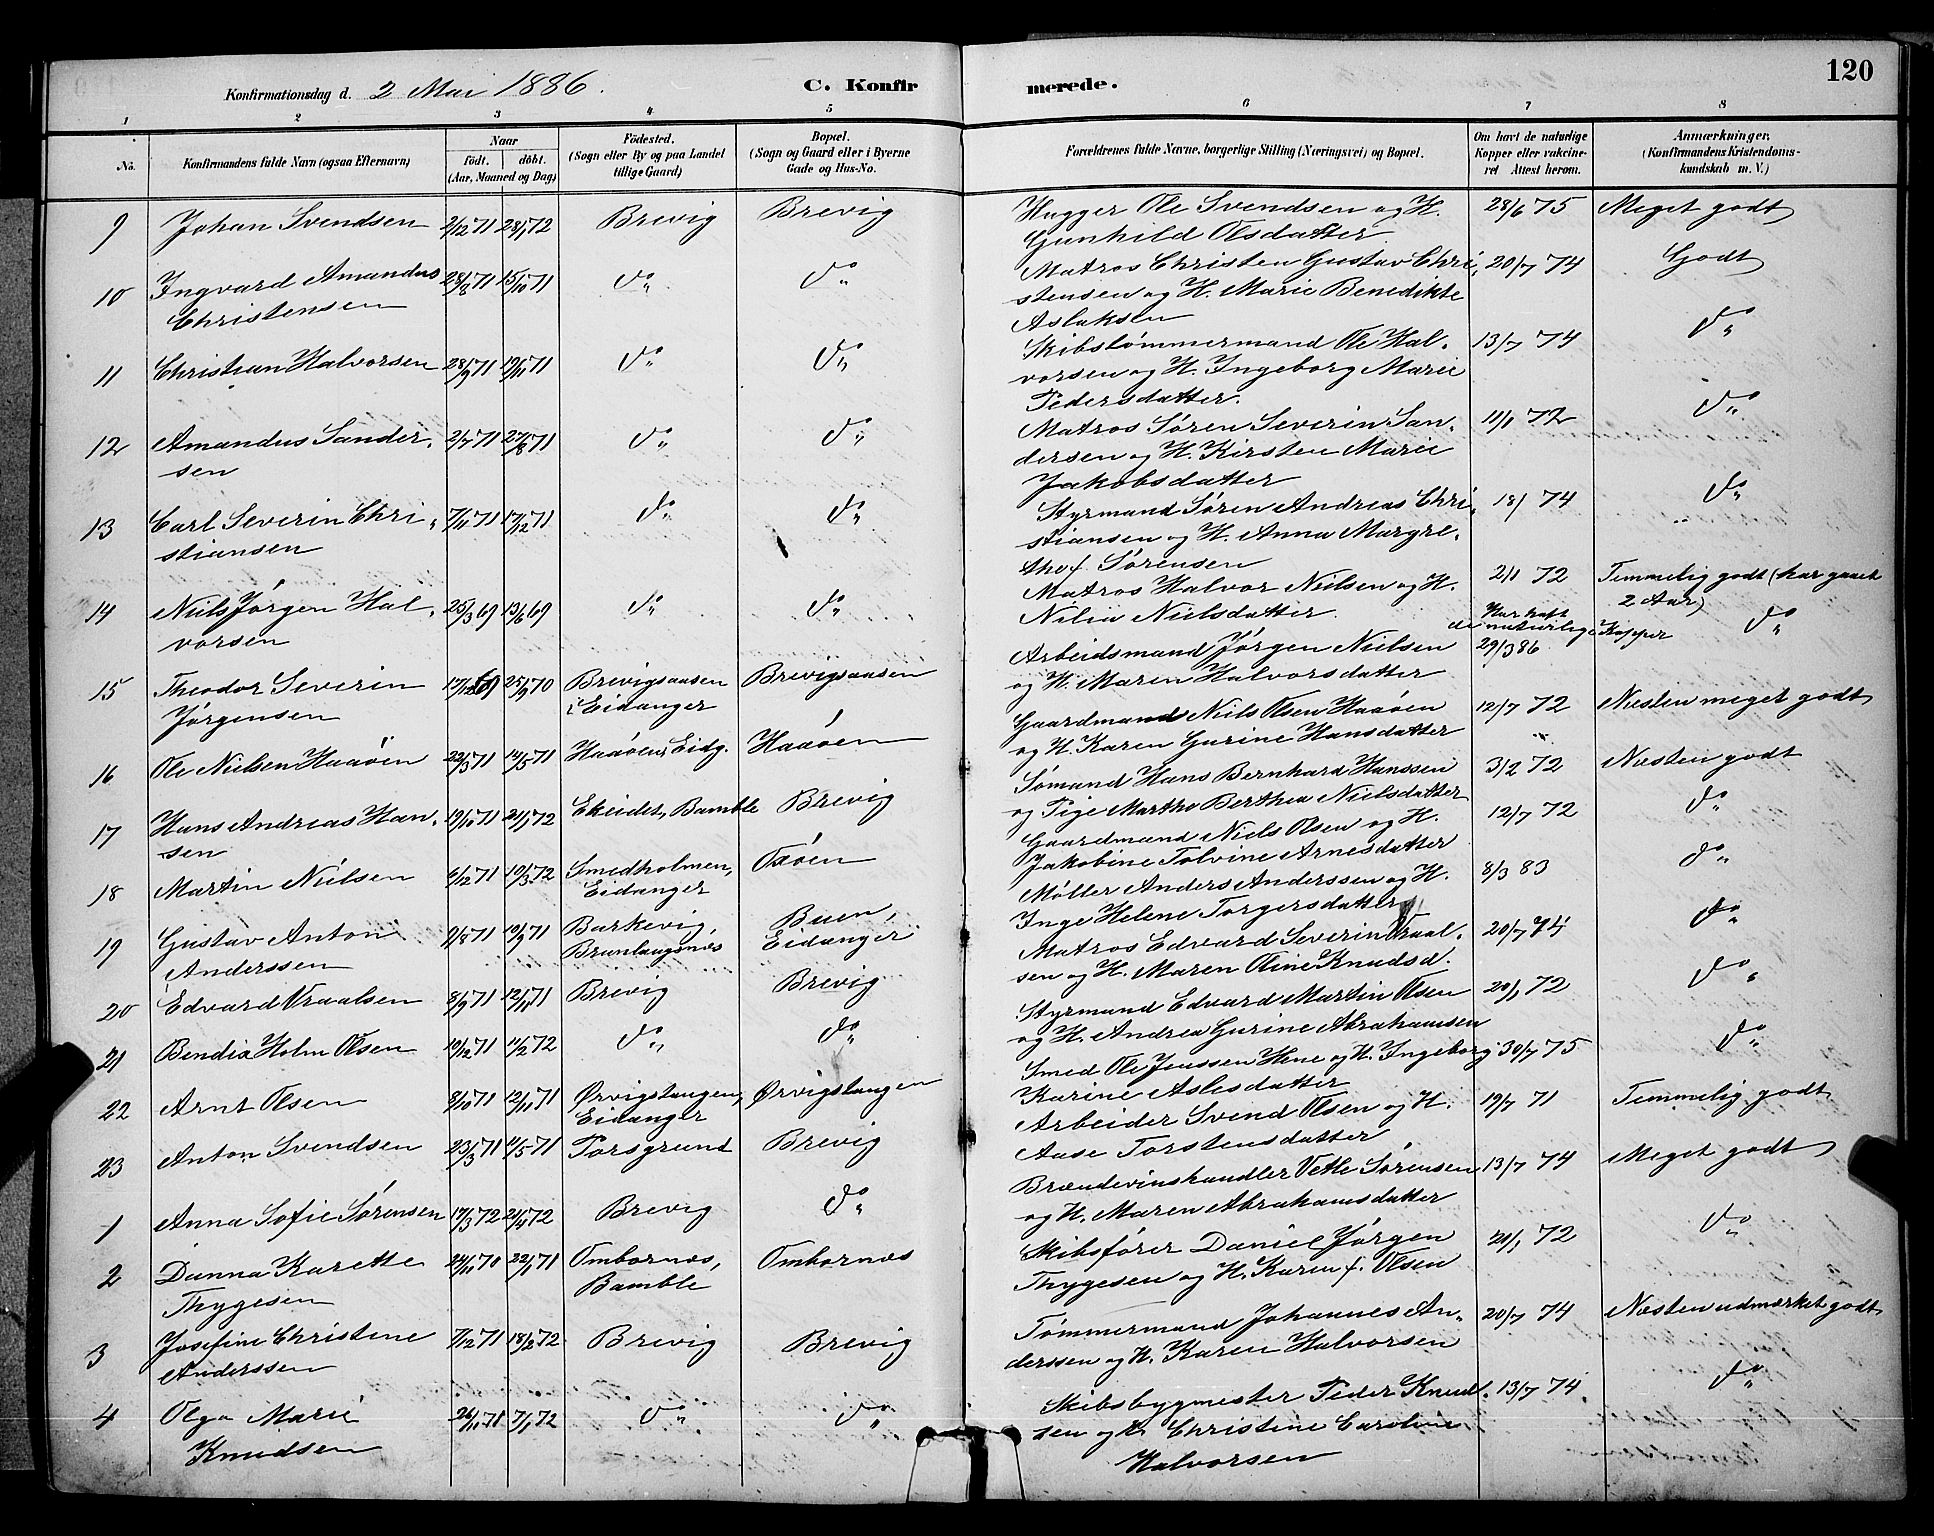 120
Konfirmationsdag d. 2 Mai 1886. C. Konfirmerede.
1 2 3 4 5 6 7 8
No. Konfirmandens fulde Navn (ogsaa Efternavn) Naar födt. döbt. (Aar, Maaned og Dag) Födested. (Sogn eller By og paa Landet tillige Gaard) Bopæl. (Sogn og Gaard eller i Byerne Gade og Hus-No. Forældrenes fulde Navne, borgerlige Stilling (Næringsvei) og Bopæl. Om havt de naturlige Kopper eller vakcineret Attest herom. Anmærkninger. (Konfirmandens Kristendomskundskab m. V.)
9 Johan Svendsen 2/12 71 28/1 72 Brevig Brevig Hugger Ole Svendsen og H. Gunhild Olsdatter 28/6 75 Meget godt
10 Ingvard Amandus Christensen 28/8 71 15/10 71 do do Matros Christen Gustav Christensen og H. Marie Benedikte Aslaksen 20/7 74 Godt
11 Christian Halvorsen 28/9 71 19/11 71 do do Skibstømmermand Ole Halvorsen og H. Ingeborg Marie Pedersdatter. 13/7 74 do
12 Amandus Sandersen 2/7 71 27/8 71 do do Matros Søren Severin Sandersen og H. Kirsten Marie Jakobsdatter 11/1 72 do
13 Carl Severin Christiansen 7/11 71 17/12 71 do do Styrmand Søren Andreas Christiansen og H. Anna Margrethe f. Sørensen 18/ 74 do
14 Niels Jørgen Halvorsen 25/3 69 13/6 69 do do Matros Halvor Nielsen og H. Nilia Nielsdatter. 2/1 72 Temmelig godt (har gaaet 2 Aar)
15 Theodor Severin Jørgensen 17/12 69 25/9 70 Brevigsaasen i Eidanger Brevigsaasen Arbeidsmand Jørgen Nielsen og H. Maren Halvorsdatter Har haft de naturlige Kopper 29/3 86 do
16 Ole Nielsen Haaøen 22/3 71 14/5 71 Haaøen, Eidg. Haaøen Gaardmands Niels Olsen Haaøen og H. Karen Gurine Hansdatter 12/7 72 Næsten meget godt
17 Hans Andreas Hansen 19/10 71 21/1 72 Ekeidet, Bamble Brevig Sømand Hans Bernhard Hanssen og Pige Marthe Berthea Nielsdatter 3/2 72 Næsten godt
18 Martin Nielsen 4/12 71 10/3 72 Smedholmen, Eidanger Oxøen Gaardmand Niels Olsen og H. Jakobine Tolvine Arnesdatter 12/7 72 do
19 Gustav Anton Anderssen 9/8 71 10/9 71 Barkevig, Brunlaugsnæs Buen, Eidanger Møller Anders Anderssen og H. Inge Helene Torgersdatter 8/3 83 do
20 Edvard Vraalsen 8/9 71 12/11 71 Brevig Brevig Matros Edvard Severin Vraalsen og H. Maren Oline Knudsd. 20/7 74 do
21 Bendix Holm Olsen 10/12 71 11/2 72 do do Styrmand Edvard Martin Olsen og H. Andrea Gurine Abrahamsen 20/1 72 do
22 Arnt Olsen 8/10 71 12/11 71 Ørvigstangen, Eidanger Ørvigstangen Smed Ole Jenssen Hene og H. Ingeborg Karine Aslesdatter 30/7 75 do
23 Anton Svendsen 23/3 71 11/5 71 Porsgrund Brevig Arbeider Svend Olsen og H. Aase Torstensdatter 19/7 71 Temmelig godt
1 Anna Sofie Sørensen 17/3 72 21/4 72 Brevig do Brændevinshandler Vetle Sørensen og H. Maren Abrahamsdatter 13/7 74 Meget godt
2 Danna Karette Thygesen 24/11 70 22/1 71 Ombornæs, Bamble Ombornæs Skibsfører Daniel Jørgen Thygesen og H. Karen f. Olsen 20/1 72 do
3 Josefine Christene Anderssen 7/12 71 18/2 72 Brevig Brevig Tømmermand Johannes Anderssen og H. Karen Halvorsen 20/7 74 Næsten udmærket godt
4 Olga Marie Knudsen 26/11 71 7/1 72 do do Skibsbygmester Peder Knudsen og H. Christine Caroline Halvorsen 13/7 74 do